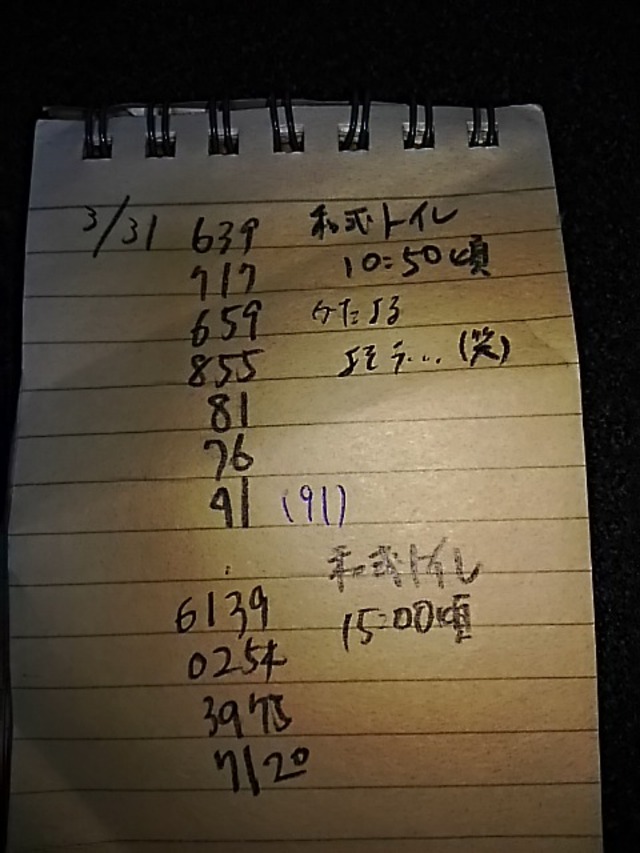 3/31 639 和式トイレ
717 10:50頃
659 かたよる
855 よそう... (笑)
81
76
91 (91)
和式トイレ
6139 15:00頃
0254
3975
7120